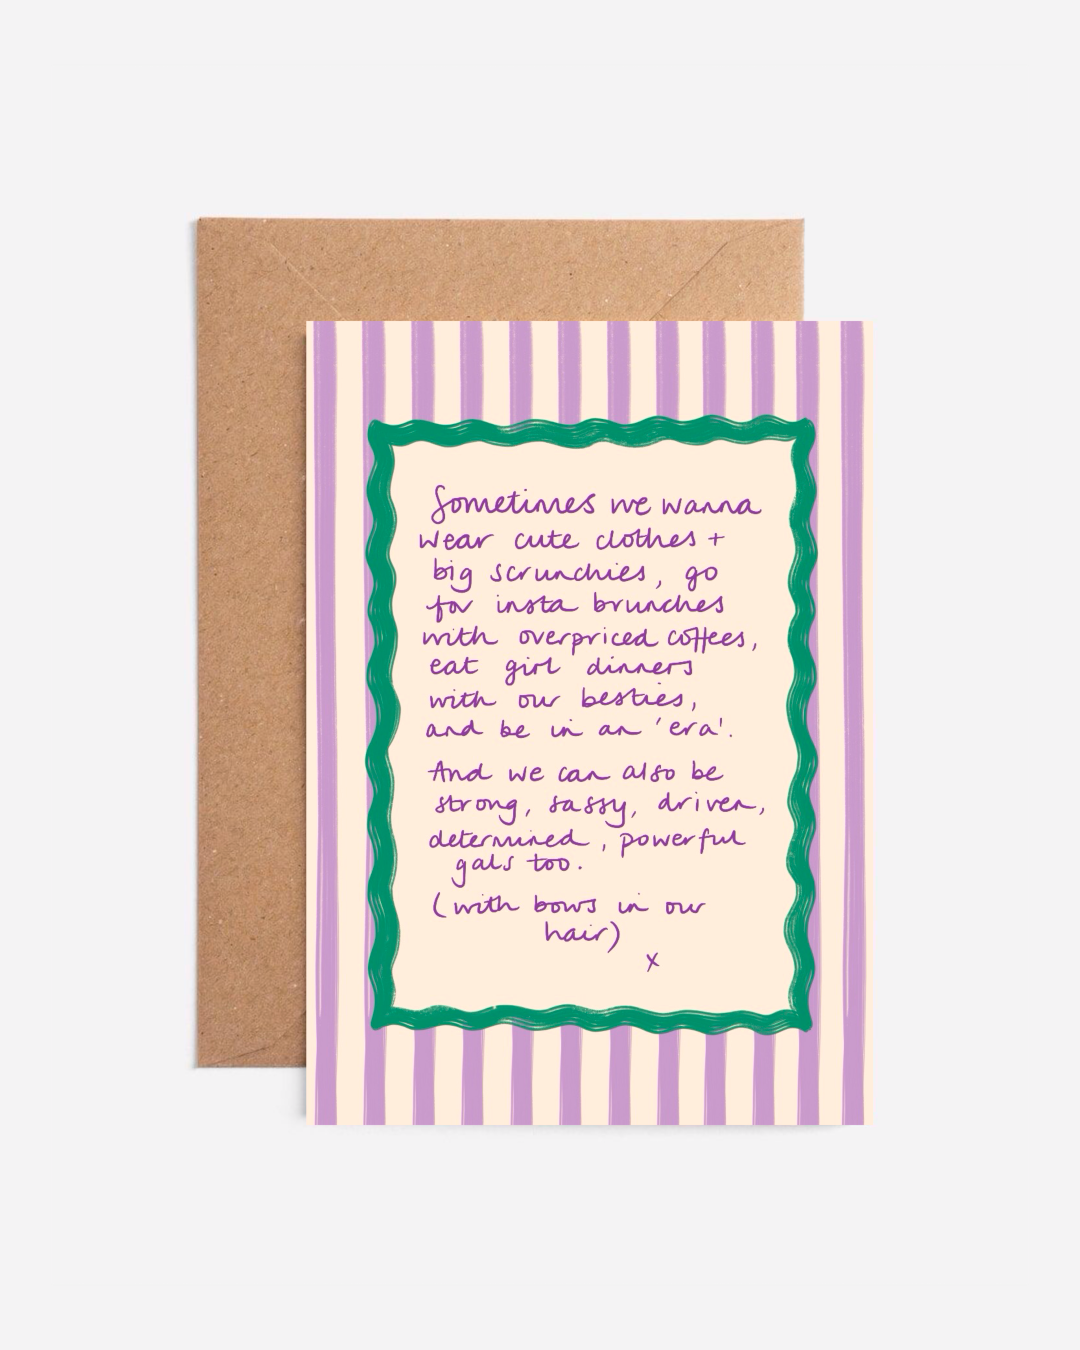 Sometimes we wanna
wear cute clothes +
big scrunchies, go
for insta brunches
with overpriced coffees,
eat girl dinners
with our besties,
and be in an 'era'.
And we can also be
strong, sassy, driven,
determined, powerful
gals too.
(with bows in our
hair)
x